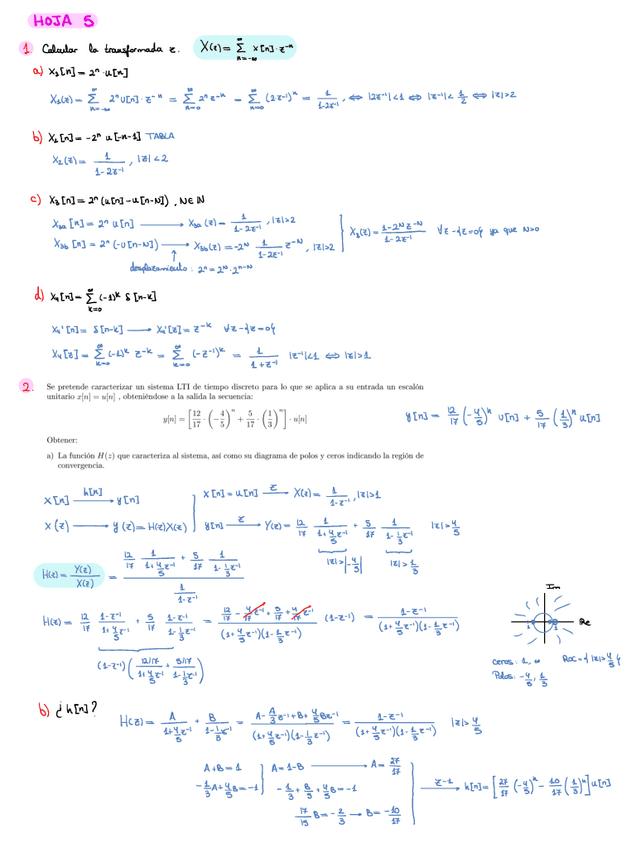 HOJA 5
1. Calcular la transformada z. X(z) = ∑_{n=-∞}^{∞} x[n]·z^{-n}
a) X₁[n] = 2ⁿ·u[n]
X₁(z) = ∑_{n=-∞}^{∞} 2ⁿ u[n]·z^{-n} = ∑_{n=0}^{∞} 2ⁿ z^{-n} = ∑_{n=0}^{∞} (2z⁻¹)ⁿ = 1/(1-2z⁻¹), ⇔ |2z⁻¹|<1 ⇔ |z⁻¹|< 1/2 ⇔ |z|>2
b) X₂[n] = -2ⁿ u[-n-1] TABLA
X₂(z) = 1/(1-2z⁻¹), |z|<2
c) X₃[n] = 2ⁿ (u[n] - u[n-N]), N∈ℕ
X₃ₐ[n] = 2ⁿ u[n] → X₃ₐ(z) = 1/(1-2z⁻¹), |z|>2
X₃b[n] = 2ⁿ (-u[n-N]) → X₃b(z) = -2^N 1/(1-2z⁻¹) z^{-N}, |z|>2
X₃(z) = (1-2^N z^{-N})/(1-2z⁻¹) ∀z-{z=0} ya que N>0
desplazamiento: 2ⁿ = 2^N·2^{n-N}
d) X₄[n] = ∑_{k=0}^{∞} (-1)^k δ[n-k]
X₄'[n] = δ[n-k] → X₄'[z] = z^{-k} ∀z-{z=0}
X₄[z] = ∑_{k=0}^{∞} (-1)^k z^{-k} = ∑_{k=0}^{∞} (-z⁻¹)^k = 1/(1+z⁻¹) |z⁻¹|<1 ⇔ |z|>1
2. Se pretende caracterizar un sistema LTI de tiempo discreto para lo que se aplica a su entrada un escalón
unitario x[n] = u[n] , obteniéndose a la salida la secuencia:
y[n] = [12/17 · (-4/5)ⁿ + 5/17 · (1/3)ⁿ] · u[n]
y[n] = 12/17 (-4/5)ⁿ u[n] + 5/17 (1/3)ⁿ u[n]
Obtener:
a) La función H(z) que caracteriza al sistema, así como su diagrama de polos y ceros indicando la región de
convergencia.
x[n] —h[n]→ y[n]
x[n] = u[n] —Z→ X(z) = 1/(1-z⁻¹), |z|>1
X(z) → Y(z) = H(z)X(z)
y[n] —Z→ Y(z) = 12/17 1/(1+4/5 z⁻¹) + 5/17 1/(1-1/3 z⁻¹) |z|>4/5
|z|>|-4/5| |z|>1/3
H(z) = Y(z)/X(z) = (12/17 1/(1+4/5 z⁻¹) + 5/17 1/(1-1/3 z⁻¹))/(1/(1-z⁻¹))
H(z) = 12/17 (1-z⁻¹)/(1+4/5 z⁻¹) + 5/17 (1-z⁻¹)/(1-1/3 z⁻¹) = (12/17 - 4/17 z⁻¹ + 5/17 + 4/17 z⁻¹)/((1+4/5 z⁻¹)(1-1/3 z⁻¹)) (1-z⁻¹) = (1-z⁻¹)/((1+4/5 z⁻¹)(1-1/3 z⁻¹))
(1-z⁻¹)(12/17/(1+4/5 z⁻¹) + 5/17/(1-1/3 z⁻¹))
Im
Re
ceros: 1, ∞
Polos: -4/5, 1/3
ROC={|z|>4/5}
b) ¿h[n]?
H(z) = A/(1+4/5 z⁻¹) + B/(1-1/3 z⁻¹) = (A - A/3 z⁻¹ + B + 4/5 B z⁻¹)/((1+4/5 z⁻¹)(1-1/3 z⁻¹)) = (1-z⁻¹)/((1+4/5 z⁻¹)(1-1/3 z⁻¹)) |z|>4/5
A+B=1
-1/3 A + 4/5 B = -1
A = 1-B → A = 27/17
-1/3 + B/3 + 4/5 B = -1
17/15 B = -2/3 → B = -10/17
—Z⁻¹→ h[n] = [27/17 (-4/5)ⁿ - 10/17 (1/3)ⁿ] u[n]